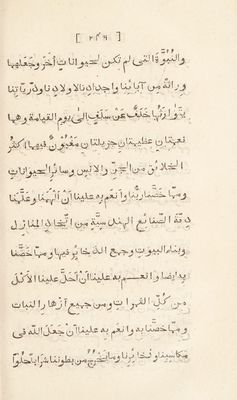 [ ٢٤٩ ]
والنبوّة التى لم تكن لحيوانات أخر وجعلهما
وراثة من آبائنا واجدادنا لاولادنا وذرّيّاتنا
يتوارثها خَلَف عَن سَلَف الى يوم القيامة وهما
نعمتان عظيمتان جزيلتان مغبون فيهما اكثر
الخلائق من الجنّ والانس وسائر الحيوانات
وممّا خصّنا ربّنا وانعم به علينا أنْ الهمنا وعلّمنا
دقّة الصنائع الهندسيّة من اتّخاذ المنازل
وبناء البيوت وجمع الذخائر فيها وممّا خصّنا
به ايضا وانعم به علينا أن احلّ علينا الأكل
من كلّ الثمرات ومن جميع ازهار النبات
وممّا خصّنا به وانعم به علينا أن جعل الله فى
مكاسبنا وذخائرنا وما يخرج من بطوننا شرابا حلوا